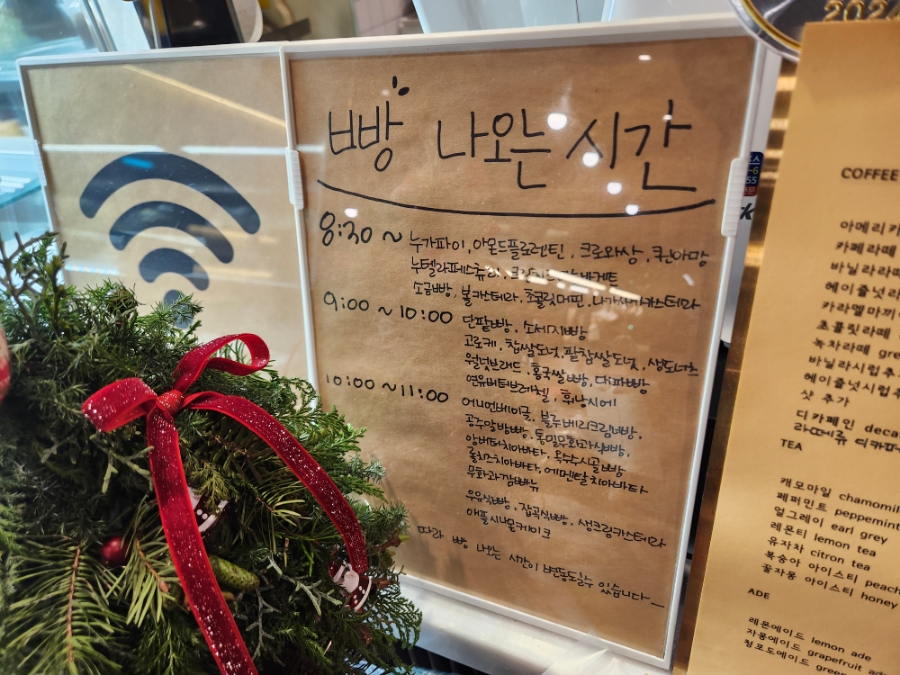 빵 나오는 시간
8:30 ~ 누가파이, 아몬드플로렌틴, 크로와상, 퀸아망
누텔라페스츄리, 바게트
소금빵, 볼카스테라, 초콜릿머핀, 나가사끼카스테라
9:00 ~ 10:00 단팥빵, 소세지빵
고로케, 찹쌀도넛, 팥찹쌀도넛, 생도너츠
월넛브레드, 홍국쌀빵, 대파빵
연유버터브레첼, 휘낭시에
10:00 ~ 11:00 어니언베이글, 블루베리크림빵,
공주알밤빵, 통밀무화과식빵,
앙버터치아바타, 옥수수시골빵
롤치즈치아바타, 에멘탈치아바타
무화과깜빠뉴
우유식빵, 잡곡식빵, 생크림카스테라
애플시나몬케이크
따라 빵 나오는 시간이 변동될수 있습니다
2024
COFFEE
아메리카
카페라떼
바닐라라떼
헤이즐넛라
카라멜마끼
초콜릿라떼
녹차라떼 gre
바닐라시럽추
헤이즐넛시럽추
샷 추가
디카페인 deca
라떼류 디카페
TEA
캐모마일 chamomil
페퍼민트 peppermint
얼그레이 earl grey
레몬티 lemon tea
유자차 citron tea
복숭아 아이스티 peach
꿀자몽 아이스티 honey
ADE
레몬에이드 lemon ade
자몽에이드 grapefruit ade
청포도에이드 green